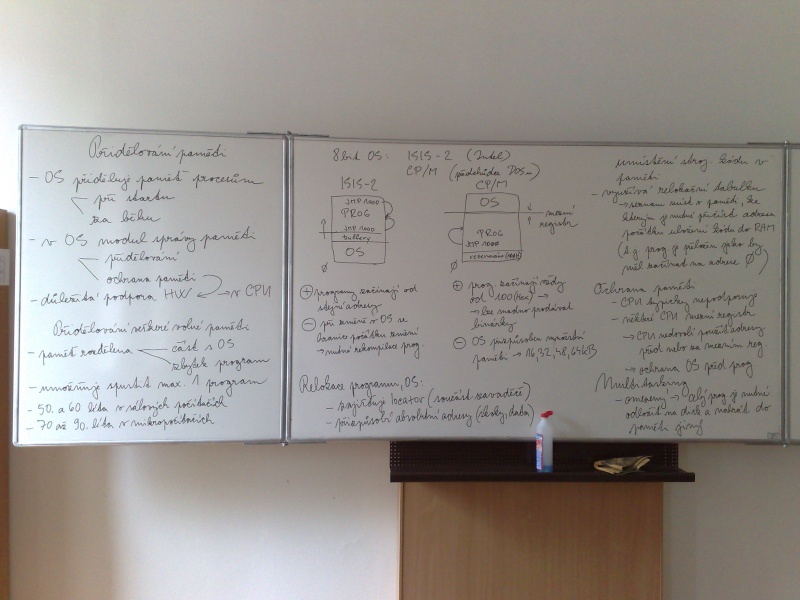 Přidělování paměti
- OS přiděluje paměť procesům
při startu
za běhu
- v OS modul správy paměti
přidělování
ochrana paměti
- důležitá podpora HW → v CPU
Přidělování veškeré volné paměti
- paměť rozdělena
část s OS
zbytek program
- umožňuje spustit max. 1 program
- 50. a 60. léta v sálových počítačích
- 70 až 90. léta v mikropočítačích
8bit OS: ISIS-2 (Intel)
CP/M (předchůdce DOSu)
ISIS-2
JMP 1000
PROG
JMP 1000
buffery
OS
0
+ programy začínají od
stejné adresy
- při změně v OS se
hranice počátku změní
→ nutná rekompilace prog.
CP/M
OS
mezní
registr
PROG
JMP 1000
0
+ prog. začínají vždy
od 100(HEX) →
→ lze snadno prodávat
binárky
- OS přizpůsoben množství
paměti → 16,32,48,64kB
Relokace programu, OS:
- zajišťuje locator (součást zavaděče)
- přizpůsobí absolutní adresy (skoky, data)
umístění stroj. kódu v
paměti
- využívá relokační tabulku
→ seznam míst v paměti, ke
kterým je nutné přičíst adresu
počátku uložení kódu do RAM
(tj. prog. je přeložen jako by
měl začínat na adrese 0)
Ochrana paměti
- CPU typicky nepodporuje
- některé CPU mezní registr
→ CPU nedovolí použít adresy
před nebo za mezním reg.
→ ochrana OS před prog.
Multitasking
- omezený → celý prog. je nutné
odložit na disk a nahrát do
paměti jiný